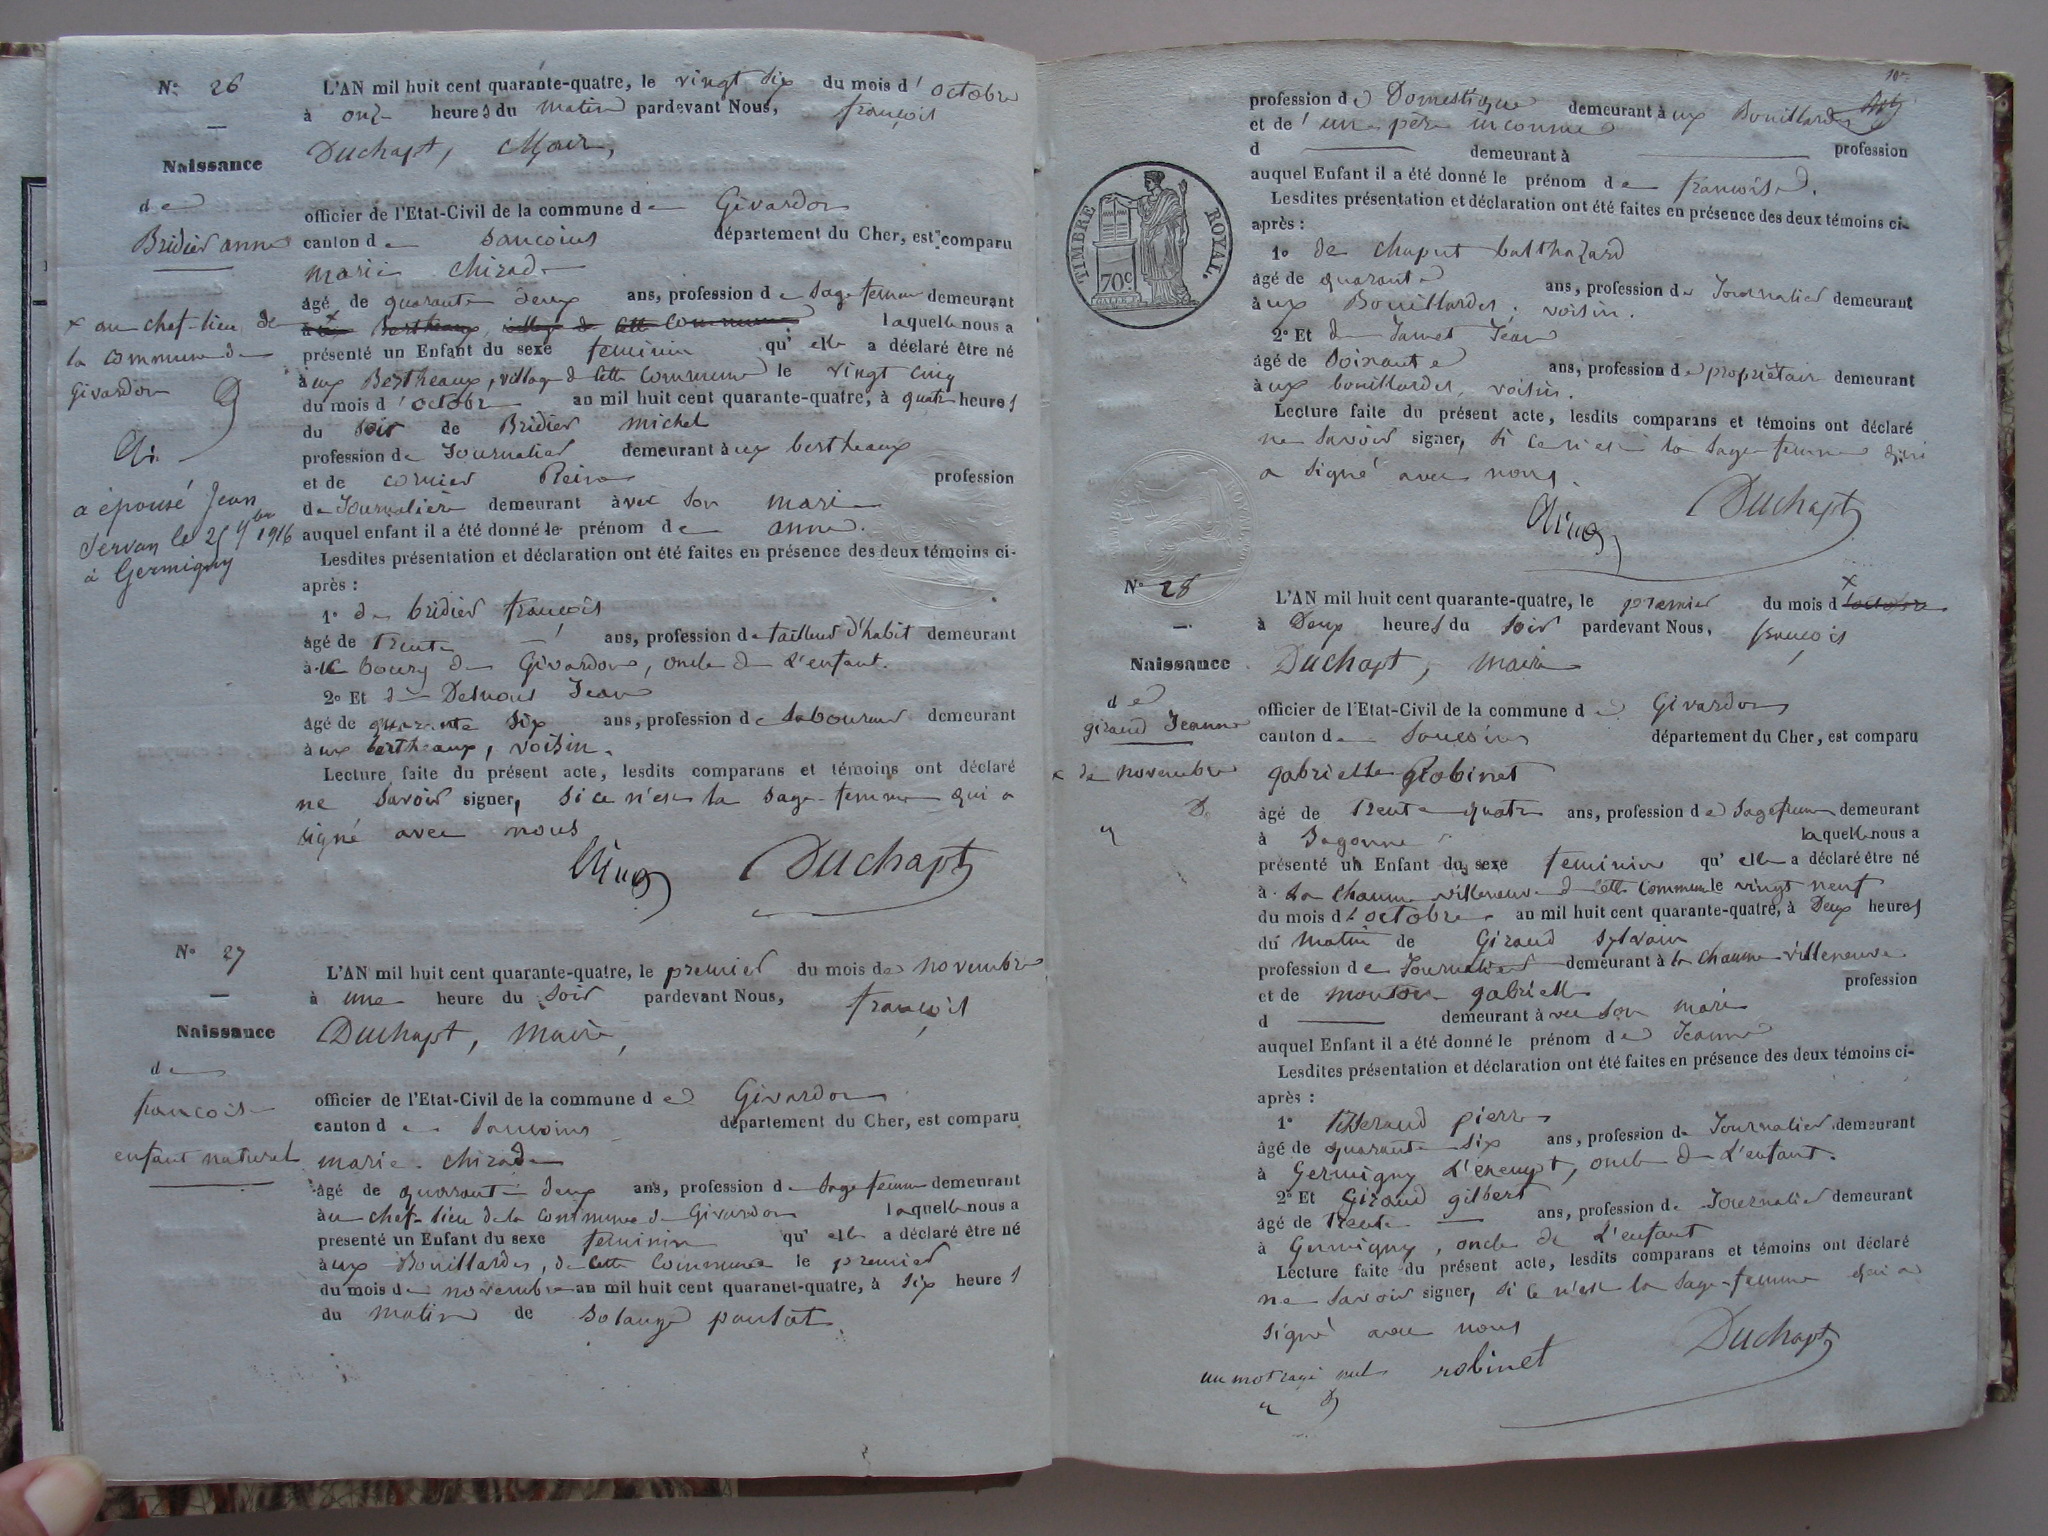 N° 26
Naissance
de
Bridier anne
x au chef-lieu de
la commune de
Givardon D
Chi.
a épousé Jean
Servan le 25 9bre 1916
à Germigny
L'AN mil huit cent quarante-quatre, le vingt six du mois d'octobre
à onze heures du matin pardevant Nous, françois
Duchapt, Maire,
officier de l'Etat-Civil de la commune de Givardon
canton de Sancoins département du Cher, est comparu
marie chirade
âgé de quarante deux ans, profession de Sage femme demeurant
aux x Bertheaux, village de cette Commune laquelle nous a
présenté un Enfant du sexe feminin qu'elle a déclaré être né
aux Bertheaux, village de cette Commune le vingt cinq
du mois d'octobre an mil huit cent quarante-quatre, à quatre heures
du soir de Bridier michel
profession de Journalier demeurant aux bertheaux
et de cornier Reine profession
de Journalière demeurant avec son mari
auquel enfant il a été donné le prénom de anne.
Lesdites présentation et déclaration ont été faites en présence des deux témoins ci-
après :
1° de bridier françois
âgé de Trente — ans, profession de tailleur d'habit demeurant
à le bourg de Givardon, oncle de L'enfant.
2° Et de Desnous Jean
âgé de quarante six ans, profession de Laboureur demeurant
aux bertheaux, voisin.
Lecture faite du présent acte, lesdits comparans et témoins ont déclaré
ne savoir signer, si ce n'est la sage-femme qui a
signé avec nous
Duchapt
N° 27
Naissance
de
francoise
enfant naturel
L'AN mil huit cent quarante-quatre, le premier du mois de novembre
à une heure du soir pardevant Nous, françois
Duchapt, maire,
officier de l'Etat-Civil de la commune de Givardon
canton de Sancoins département du Cher, est comparu
marie chirade
âgé de quarante deux ans, profession de Sage femme demeurant
au chef-lieu de la commune de Givardon laquelle nous a
presenté un Enfant du sexe feminin qu'elle a déclaré être né
aux Bouillardes, de cette Commune le premier
du mois de novembre an mil huit cent quaranet-quatre, à six heures
du matin de Solange pautat.
profession de Domestique demeurant aux Bouillardes
et de un père inconnu
d — demeurant à — profession
auquel Enfant il a été donné le prénom de francoise.
Lesdites présentation et déclaration ont été faites en présence des deux témoins ci-
après :
TIMBRE ROYAL.
70c
1° de chaput balthazard
âgé de quarante ans, profession de Journalier demeurant
aux Bouillardes, voisin.
2° Et de Jamet Jean
âgé de Soixante ans, profession de propriétaire demeurant
aux bouillardes, voisin.
Lecture faite du présent acte, lesdits comparans et témoins ont déclaré
ne savoir signer, si ce n'est la sage femme qui
a signé avec nous.
Duchapt
N° 28
Naissance
de
giraud Jeanne
x de novembre
D.
L'AN mil huit cent quarante-quatre, le premier du mois d x'octobre
à Deux heures du soir pardevant Nous, françois
Duchapt, maire
officier de l'Etat-Civil de la commune de Givardon
canton de Sancoins département du Cher, est comparu
gabrielle Robinet
âgé de Trente quatre ans, profession de Sagefemme demeurant
à Sagonne laquelle nous a
présenté un Enfant du sexe feminin qu'elle a déclaré être né
à La chaume villeneuve de cette Commune le vingt neuf
du mois d'octobre an mil huit cent quarante-quatre, à Deux heures
du matin de Giraud Sylvain
profession de Journalier demeurant à la chaume villeneuve
et de mouton gabrielle profession
d — demeurant avec son mari
auquel Enfant il a été donné le prénom de Jeanne
Lesdites présentation et déclaration ont été faites en présence des deux témoins ci-
après :
1° pierre
âgé de quarante six ans, profession de Journalier demeurant
à Germigny L'exempt, oncle de L'enfant.
2° Et Giraud gilbert
âgé de Trente — ans, profession de Journalier demeurant
à Germigny, oncle de L'enfant
Lecture faite du présent acte, lesdits comparans et témoins ont déclaré
ne savoir signer, si ce n'est la sage-femme qui a
signé avec nous
Duchapt
robinet
un mot rayé nul
D